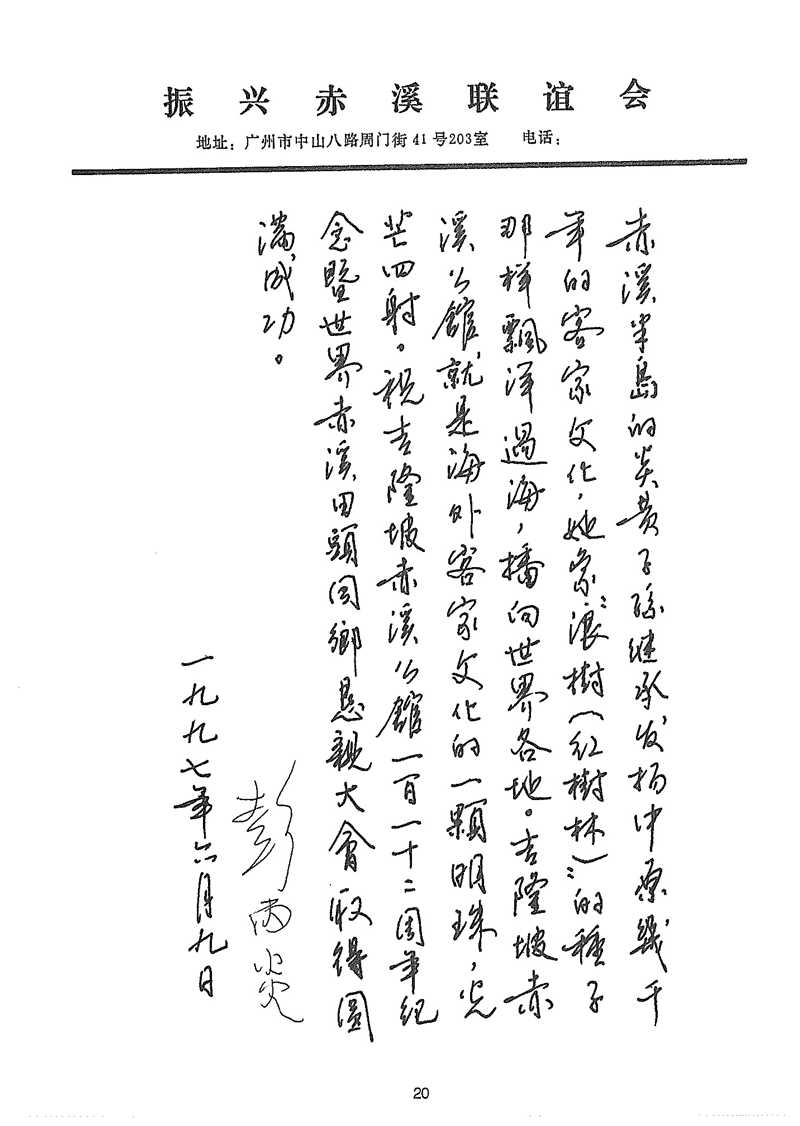 振兴赤溪联谊会
地址：广州市中山八路周门街41号203室 电话：
赤溪半岛的炎黄子孫继承发扬中原幾千
年的客家文化，她象“浪樹（红樹林）”的種子
那样飄洋過海，播向世界各地。吉隆坡赤
溪公館就是海外客家文化的一顆明珠，光
芒四射。祝吉隆坡赤溪公館一百一十二周年纪
念暨世界赤溪田頭同鄉恳親大會取得圓
满成功。
彭雨炎
一九九七年六月九日
20